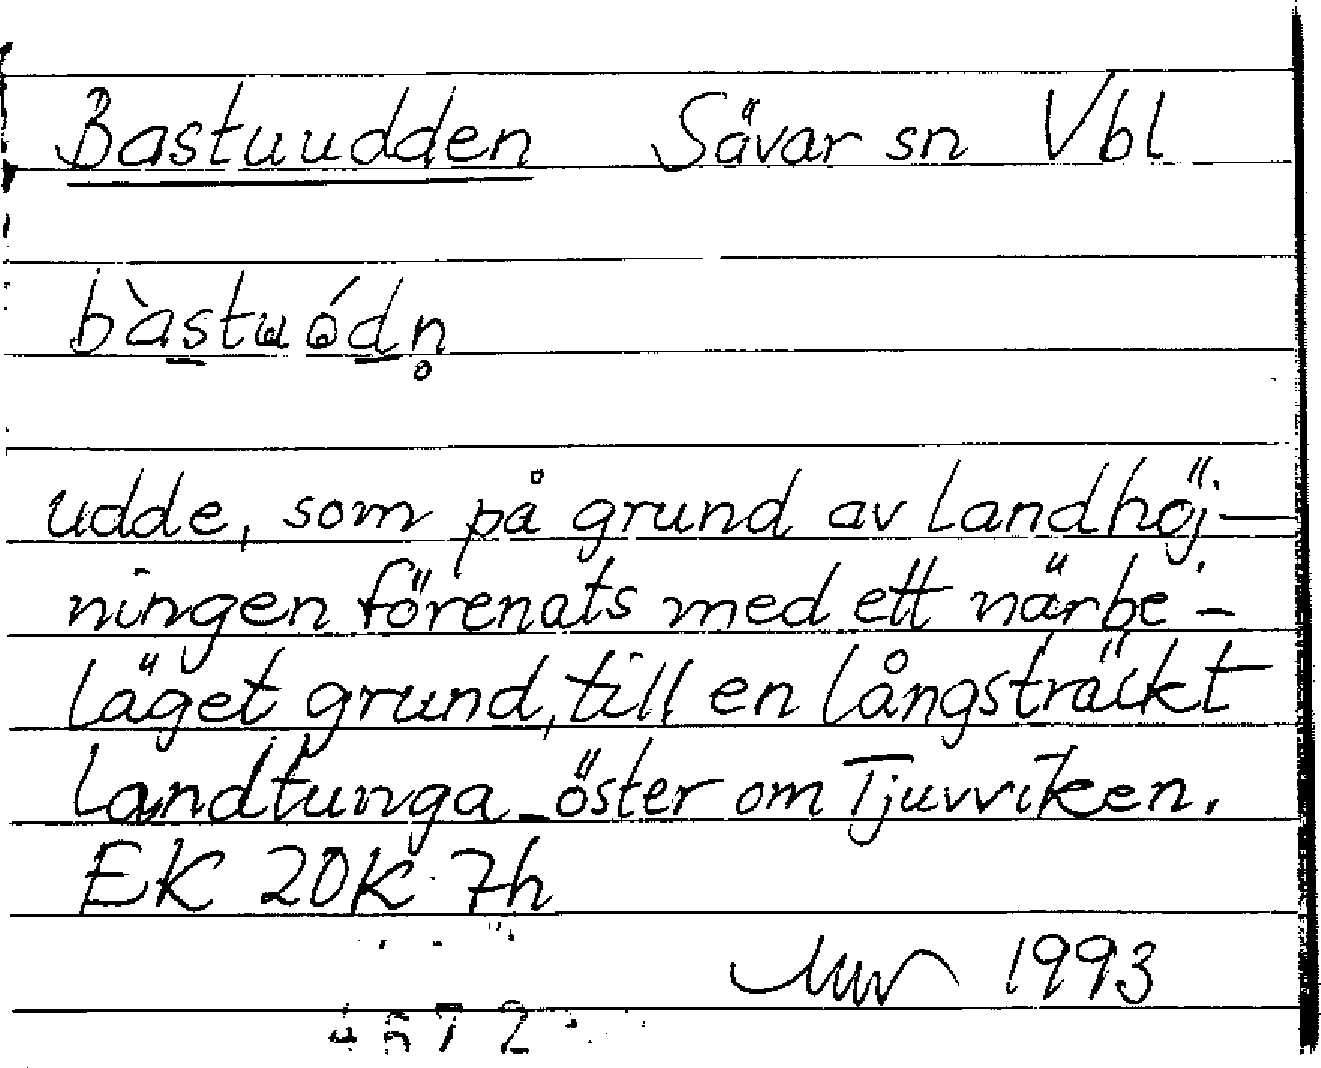 Bastuudden Sävar sn Vbl
bàstuódn̥
udde, som på grund av landhöj-
ningen förenats med ett närbe-
läget grund, till en långsträckt
landtunga öster om Tjuvviken.
EK 20K 7h
1993